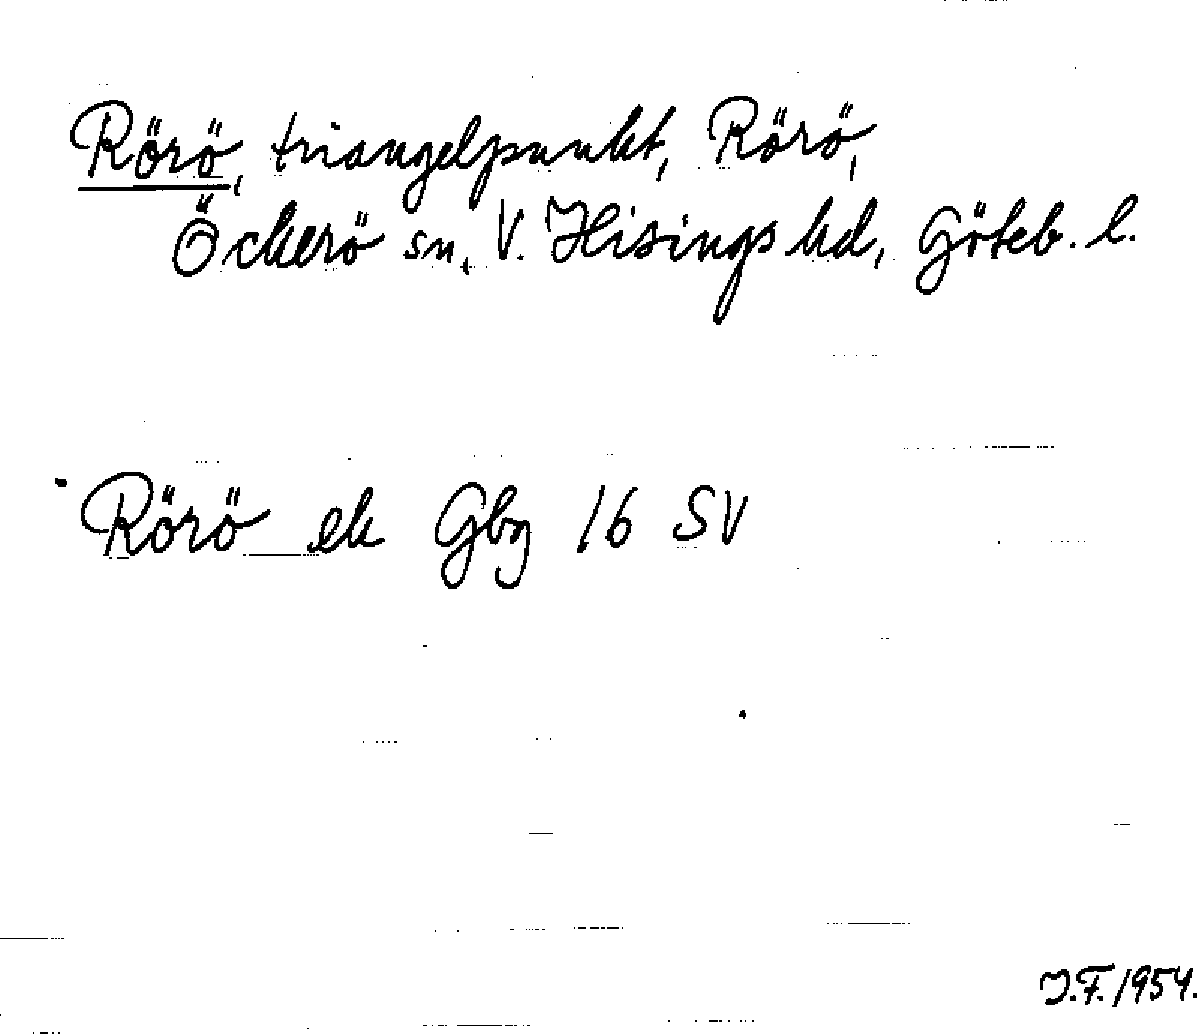 Rörö, triangelpunkt, Rörö,
Öckerö sn, V. Hisings hd, Göteb. l.
Rörö ek Gbg 16 SV
J.F. 1954.